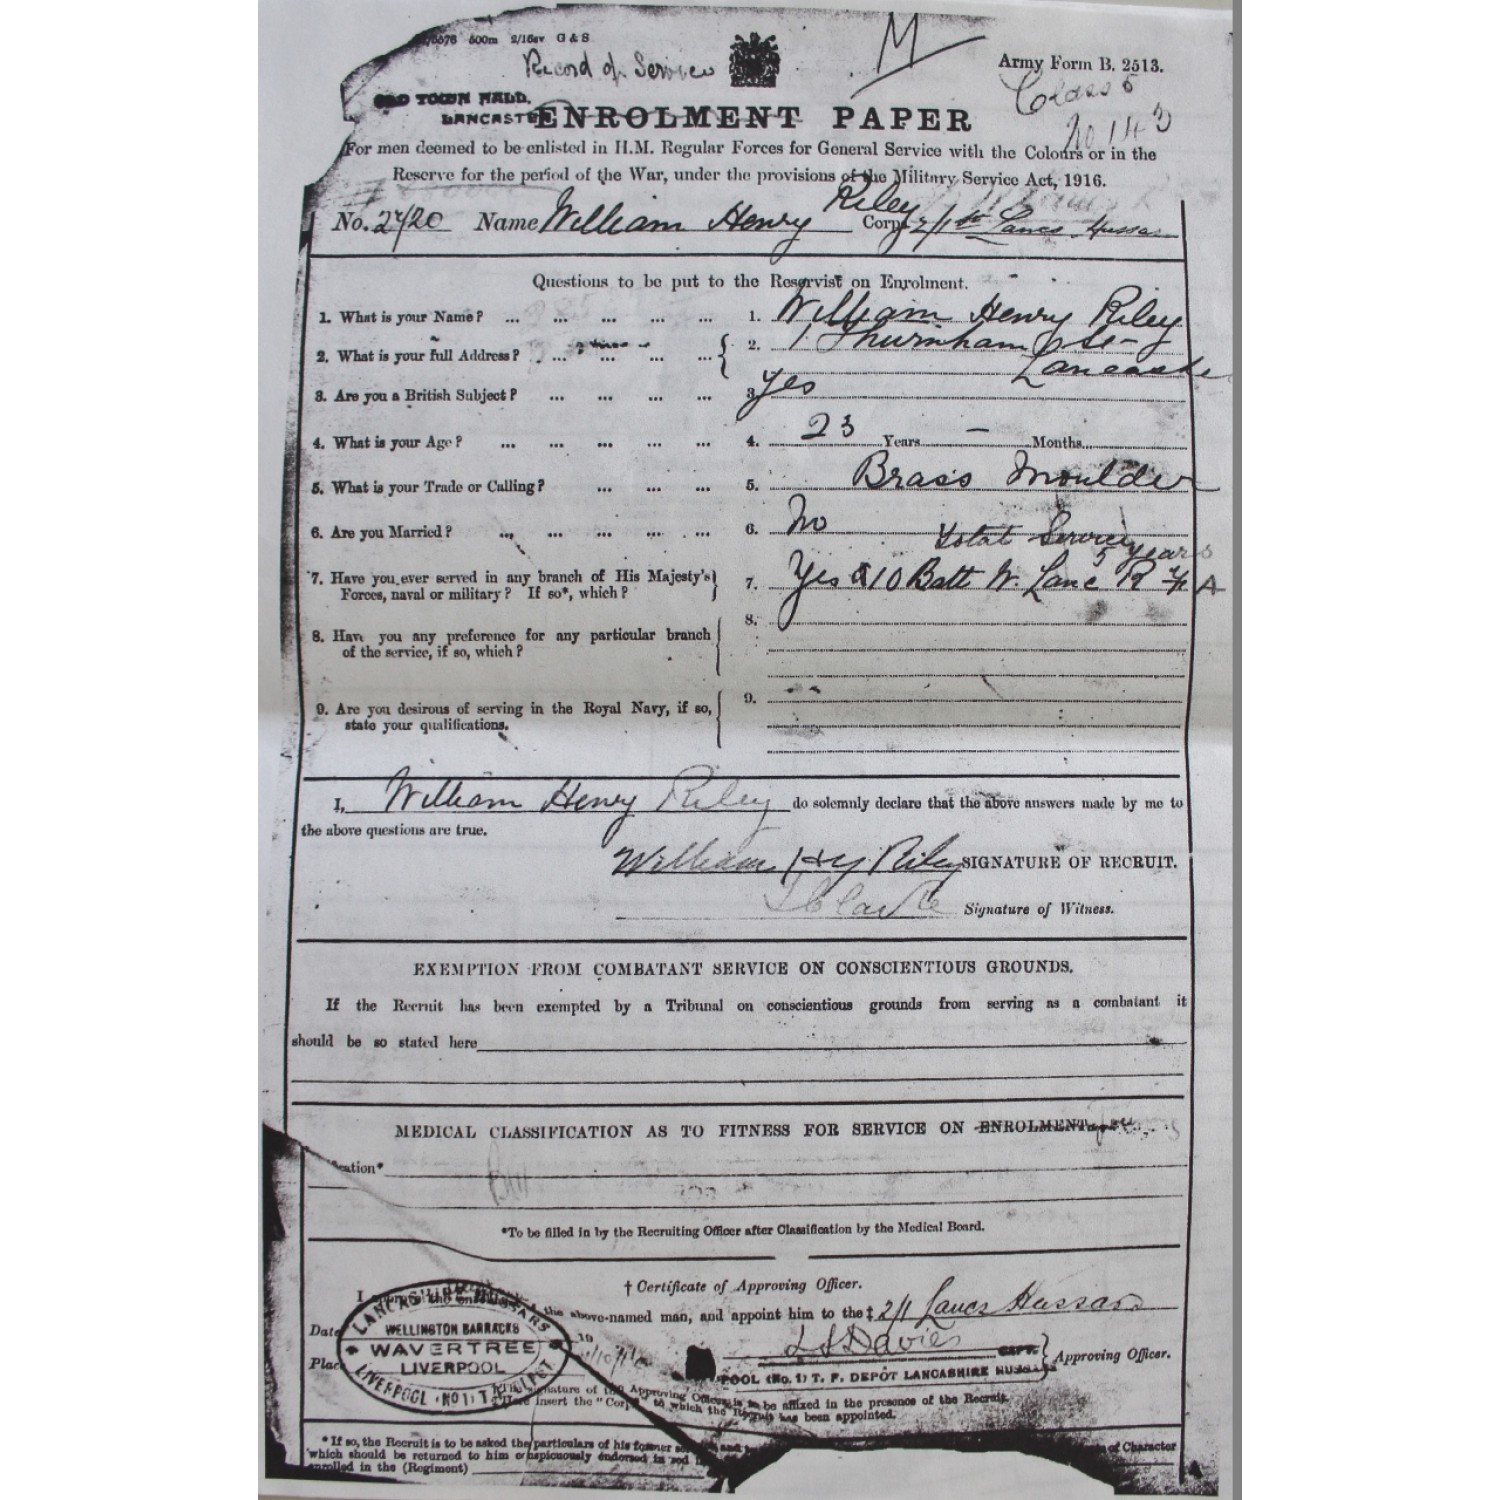 500m 2/16 G & S
Record of Service
M
Army Form B. 2513.
Class 5
No 143
OLD TOWN HALL.
LANCASTER
ENROLMENT PAPER
For men deemed to be enlisted in H.M. Regular Forces for General Service with the Colours or in the
Reserve for the period of the War, under the provisions of the Military Service Act, 1916.
No. Name William Henry Riley Corps 2/1st Lancs Hussa
Questions to be put to the Reservist on Enrolment.
1. What is your Name? ... ... ... ... ... 1. William Henry Riley
2. What is your full Address? ... ... ... ... 2. 1 Thurnham St
Lancaste
3. Are you a British Subject? ... ... ... ... 3. Yes
4. What is your Age? ... ... ... ... ... 4. 23 Years - Months
5. What is your Trade or Calling? ... ... ... 5. Brass Moulder
6. Are you Married? ... ... ... ... ... 6. No
Total Service
5 years
7. Have you ever served in any branch of His Majesty's
Forces, naval or military? If so*, which? 7. Yes 10 Batt W. Lanc R F A
8. Have you any preference for any particular branch
of the service, if so, which? 8.
9. Are you desirous of serving in the Royal Navy, if so,
state your qualifications. 9.
I, William Henry Riley do solemnly declare that the above answers made by me to
the above questions are true.
William Hy Riley SIGNATURE OF RECRUIT.
Signature of Witness.
EXEMPTION FROM COMBATANT SERVICE ON CONSCIENTIOUS GROUNDS.
If the Recruit has been exempted by a Tribunal on conscientious grounds from serving as a combatant it
should be so stated here
MEDICAL CLASSIFICATION AS TO FITNESS FOR SERVICE ON ENROLMENT
cation*
*To be filled in by the Recruiting Officer after Classification by the Medical Board.
† Certificate of Approving Officer.
I the above-named man, and appoint him to the‡ 2/1 Lancs Hussars
Date 19
Davies
CAPT.
Place Approving Officer.
POOL (No. 1) T. F. DEPÔT LANCASHIRE HUSSARS
LANCASHIRE HUSSARS
WELLINGTON BARRACKS
WAVERTREE
LIVERPOOL
LIVERPOOL (NO 1) T.
signature of the Approving Officer is to be affixed in the presence of the Recruit.
insert the "Corps" to which the Recruit has been appointed.
* If so, the Recruit is to be asked the particulars of his former
of Character
which should be returned to him conspicuously endorsed in red
enrolled in the (Regiment)